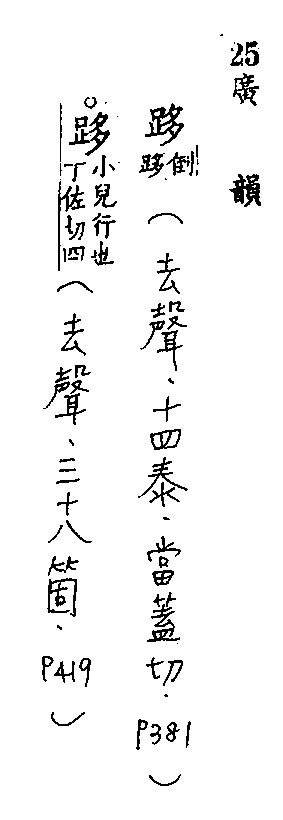 25廣韻
跢 倒跢(去聲、十四泰、當蓋切、P381)
跢 小兒行也丁佐切四(去聲、三十八箇、P419)